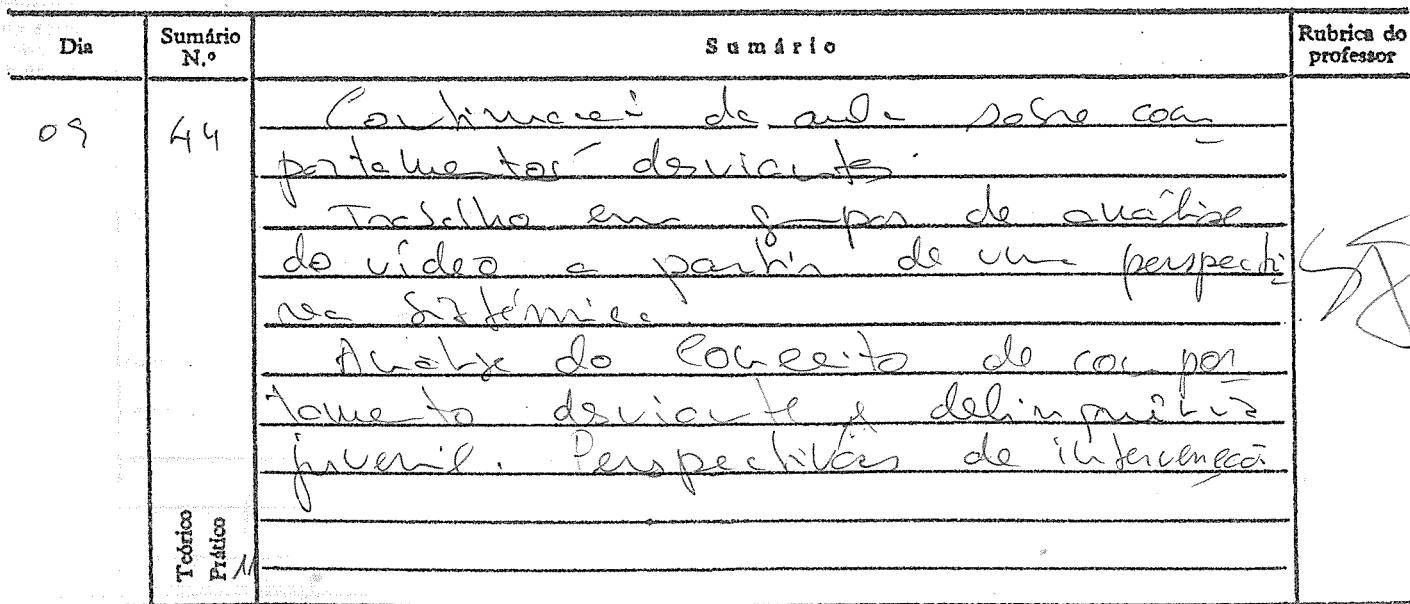 Dia Sumário N.º Sumário Rubrica do professor
09 44 Continuação da aula sobre com
portamentos desviantes.
Trabalho em grupos de análise
do vídeo a partir de uma perspecti
va sistémica.
Análise do conceito de compor
tamento desviante e delinquência
juvenil. Perspectivas de intervenção
Teórico
Prático 11